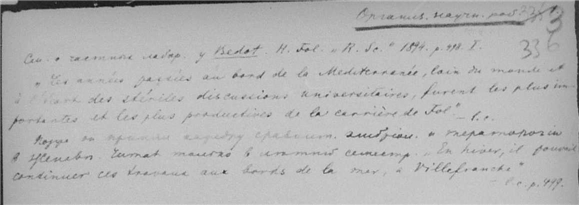 Организ. научн. раб
3
336
См. о частных лабор. у Bedot. H. Fol. "1894. p. X.
"Les années passées au bord de la Méditerranée, loin du monde et
à l'écart des stériles discussions universitaires, furent les plus im-
portantes et les plus productives de la carrière de Fol" - l.c.
Когда он кафедру сравнит. эмбриол. и тератологии
в Женеве, читал только в семестр. "En hiver, il pouvait
continuer ces travaux aux bords de la mer, à Villefranche"
- l.c. p. 499.